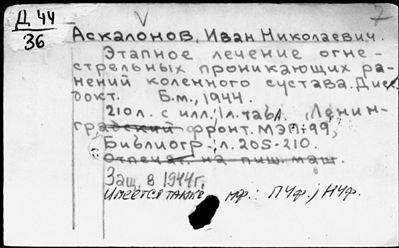 Д 44
36
V
7
Аскалонов, Иван Николаевич.
Этапное лечение огне-
стрельных проникающих ра-
нений коленного сустава. Дис.
докт. Б.м., 1944.
210 л. с илл., 1л. табл. Ленин-
градский фронт. МЭП: 99,
Библиогр.: л. 205-210.
Отпечат. на пиш. маш.
Защ. в 1944г.
Имеется также мф.: ПЧф., НЧф.